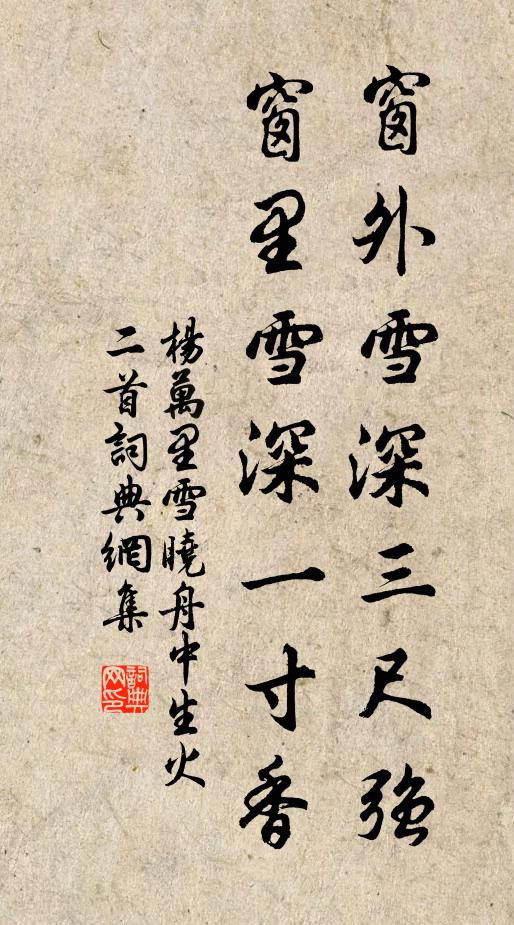 窗外雪深三尺强
窗里雪深一寸香
楊萬里雪曉舟中生火
二首詞典網集
詞典
网印